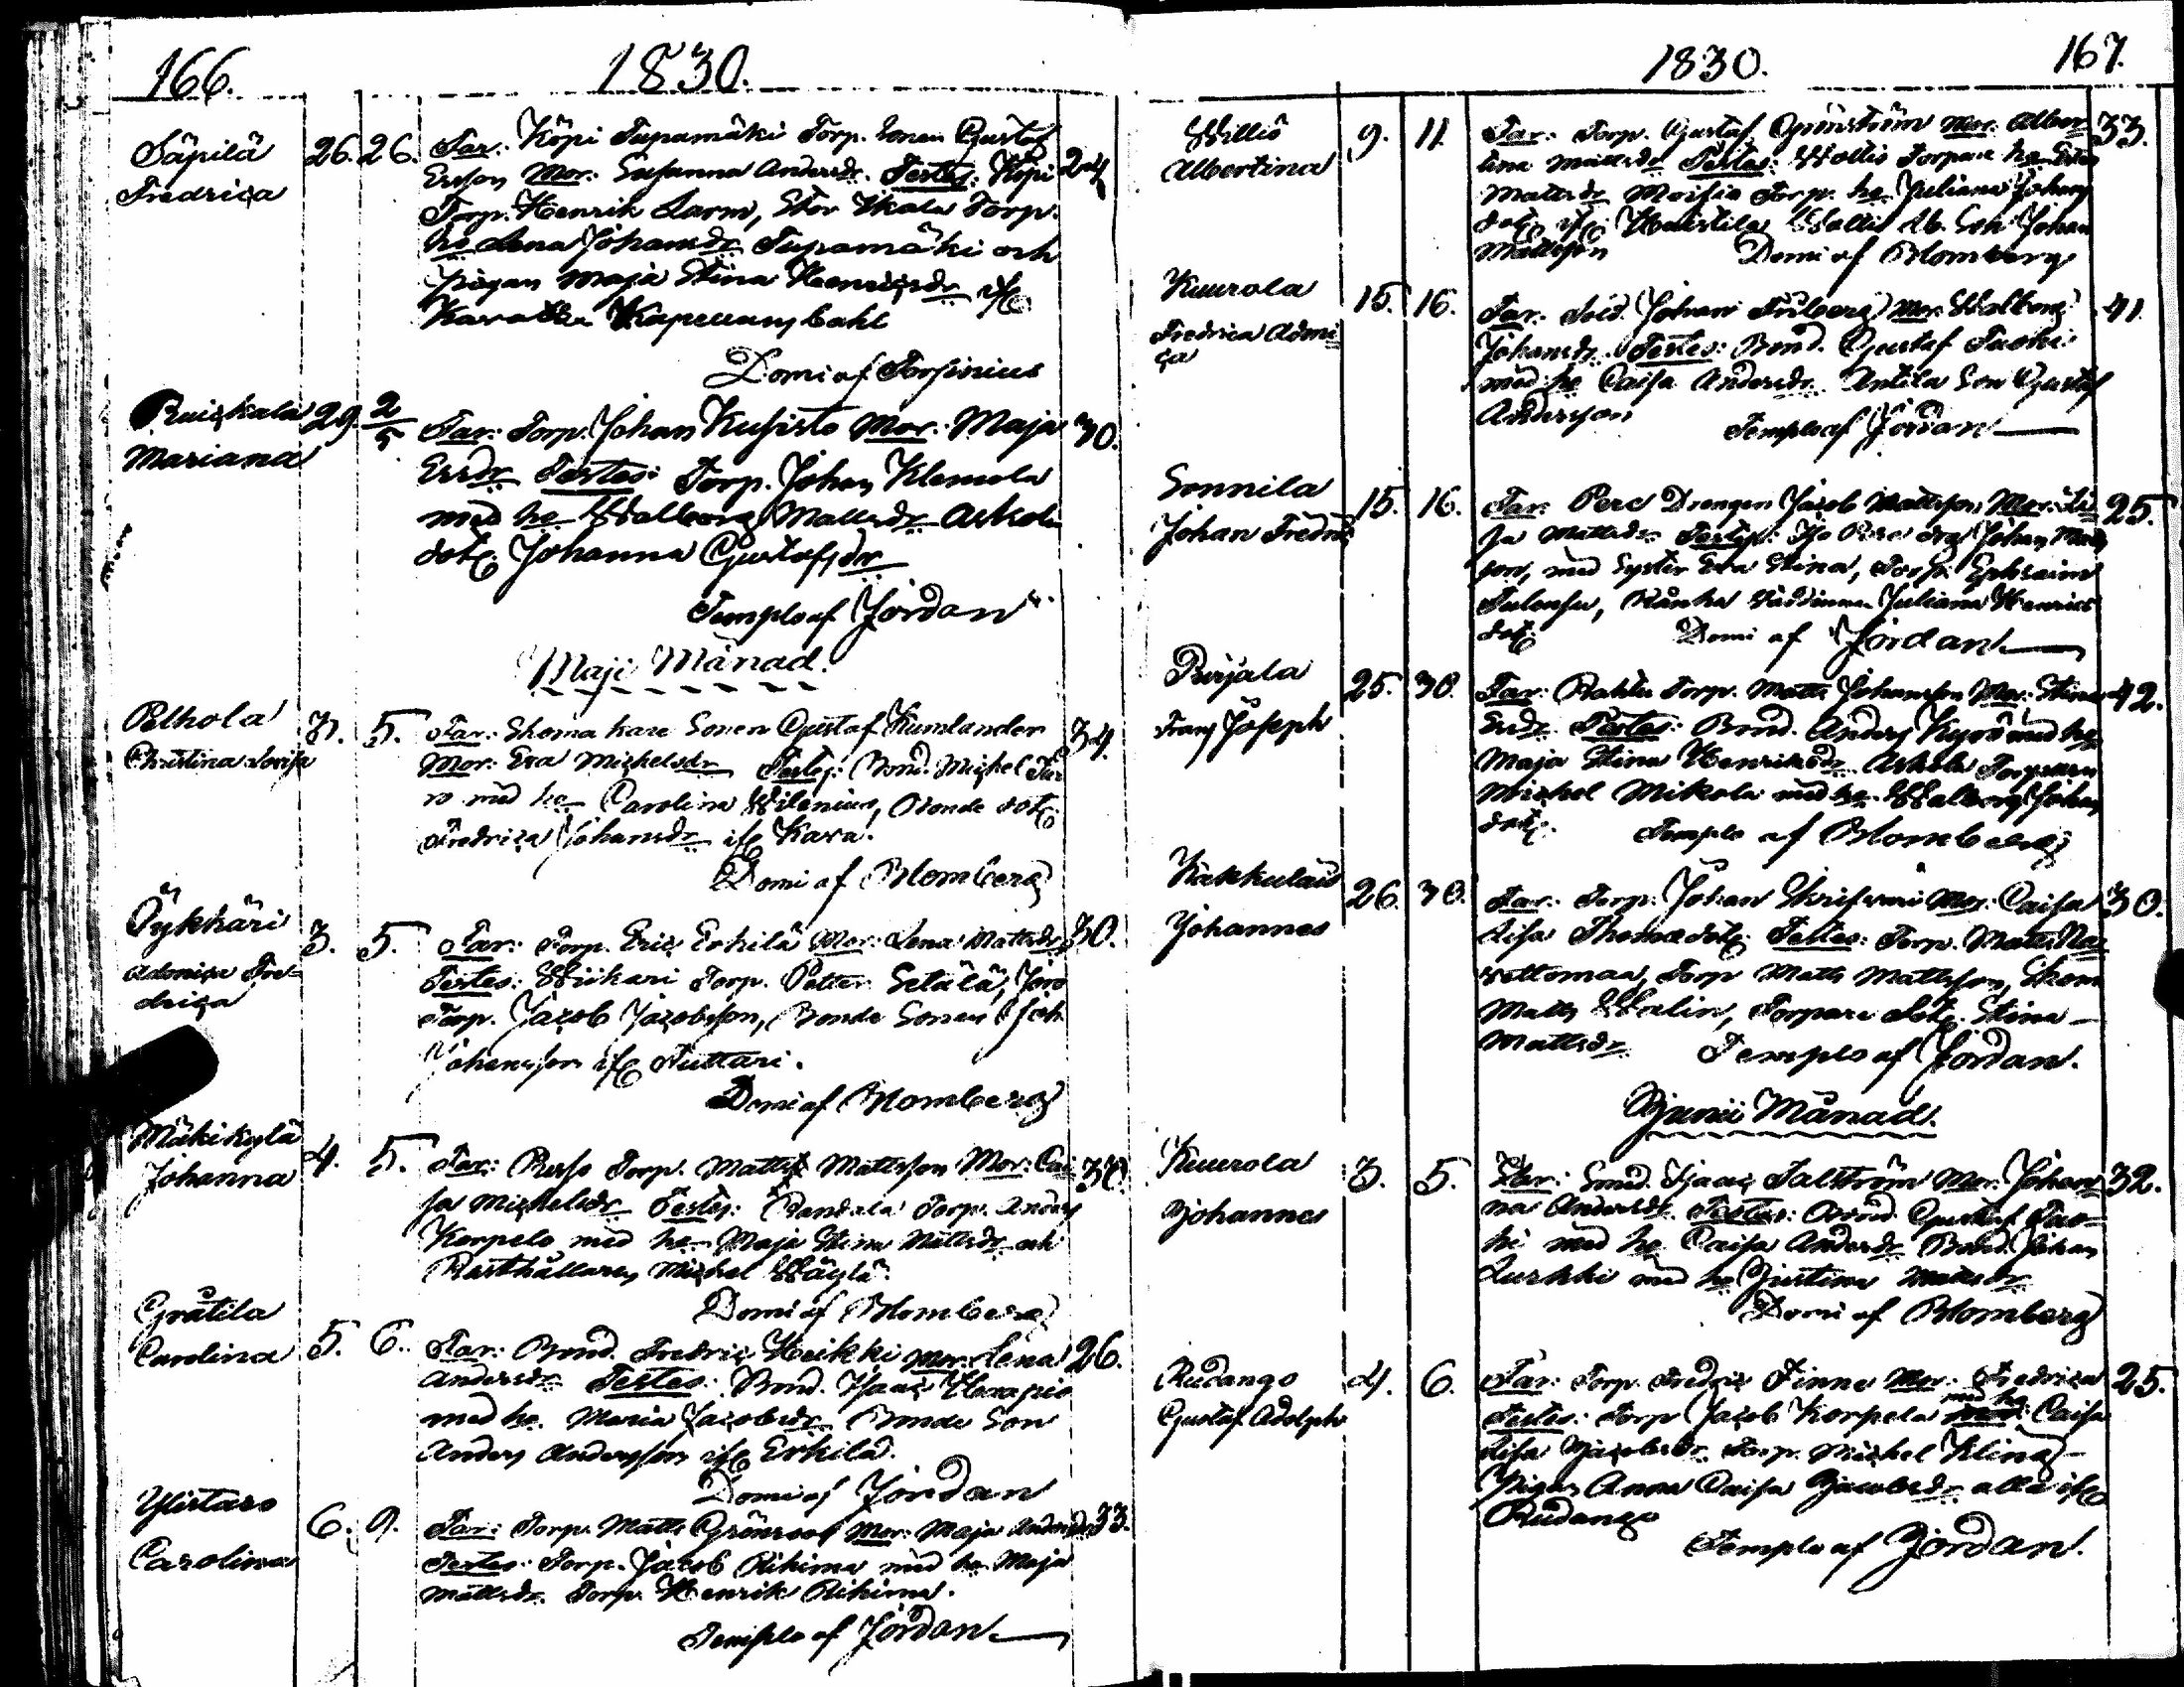 166.
1830.
Säpilä
Fredrica
26. 26.
Far: Köpi Tupamäki Torp. Sonen Gustaf
Ersson Mor: Susanna Andersdr. Testes: Köpi
24
Torp. Henrik Larm, Stor Skala Torp.
he Lena Johansdr Tupamäki och
pigan Maja Stina Henricsdr if
Kapellans
Domi af Forsinius
Ruiskala
Mariana
29. 2/5
Far: Torp. Johan Kusisto Mor: Maja
30.
Ersdr Testes: Torp. Johan Klemola
med he Walborg Mattsdr Askola
dotr Johanna Gustafsdr
Templo af Jordan
Maji Månad.
Pelhola
Christina Lovisa
3. 5.
Far: Skomakare Sonen Gustaf Kumlander
34.
Mor: Eva Michelsdr Testes: Bond. Michel
ro med he Carolina Wilenius, Bonde dotr
Fredrica Johansdr if Kara.
Domi af Blomberg
Öykkäri
Adonica Fre-
drica
3. 5.
Far: Torp. Eric Erkilä Mor: Lena Mattsdr
30.
Testes: Wiikari Torp. Petter Setälä,
Torp. Jacob Jacobsson, Bonde Sonen Joh
Johansson if Tuttari.
Domi af Blomberg
Mäkikylä
Johanna
4. 5.
Far: Torp. Matts Mattsson Mor: Cai
30.
sa Michelsdr Testes: Torp. Anders
Korpelo med he Maja Stina Mattsdr och
Rusthållaren Michel Wäylä.
Domi af Blomberg
Gråtila
Carolina
5. 6.
Far: Bond. Fredric Heikki Mor: Lena
26.
Andersdr Testes: Bond. Isaac
med he. Maria Jacobsdr Bonde Son
Anders Andersson if Erkilä.
Domi af Jordan
Ylistaro
Carolina
6. 9.
Far: Torp. Matts Grönroos Mor: Maja Andersdr
33.
Testes: Torp. Jacob Rihima med he Maja
Mattsdr. Torp. Henrik Rihima.
Templo af Jordan
1830.
167.
Willio
Albertina
9. 11.
Far: Torp. Gustaf Mor: Alber
33.
tina Mattsdr Testes: Torpare he
Mattsdr Torp. he. Juliana Johans
dotr if Son Johan
Mattsson Domi af Blomberg
Kuurola
Fredrica Adoni
ca
15. 16.
Far: Sold. Johan Friberg Mor: Walborg
41.
Johansdr. Testes: Bond. Gustaf
med he Caisa Andersdr. Antila Son Gustaf
Andersson
Templo af Jordan
Sonnila
Johan Fredric
15. 16.
Far: Pere Drengen Jacob Mattsson Mor: Li
25.
sa Mattsdr Testes: Johan Matts
son, med Syster Eva Stina, Torp. Ephraim
Juliana Henrics
dotr. Domi af Jordan
Pirjala
Frans Joseph
25. 30.
Far: Torp. Matts Johansson Mor: Stina
42.
Ersdr. Testes: Bond. Anders Kyrö med he
Maja Stina Henriksdr. Askola Torparen
Michel Mikola med he Walborg Johans
dotr. Templo af Blomberg
Kakkulais
Johannes
26. 30.
Far: Torp. Johan Skrifvari Mor: Caisa
30.
Lisa Thomædotr Testes: Torp. Matts
Torp Matts Mattsson, Skom
Matts Walin, Torpare dotr. Stina
Mattsdr Templo af Jordan.
Junii Månad.
Kuurola
Johannes
3. 5.
Far: Smed. Isaac Salström Mor: Johan
32.
na Andersdr Testes: Bond. Gustaf
ki med he Caisa Andersdr Bond. Johan
Lurkki med he Justina Mattsdr
Domi af Blomberg
Rudango
Gustaf Adolph
4. 6.
Far: Torp. Fredric Finne Mor: Fredrica
25.
Testes: Torp Jacob Korpela med he Caisa
Lisa Jacobsdr. Torp. Michel Kling
Pigan Anna Caisa Jacobsdr alla if
Rudango
Templo af Jordan.